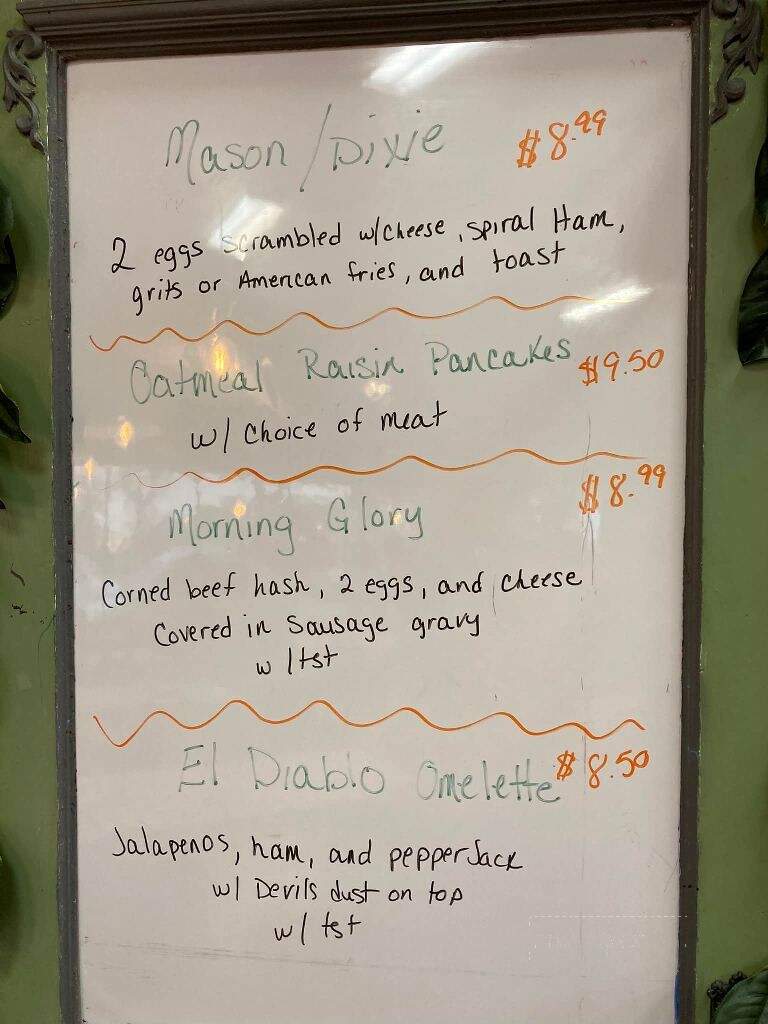 Mason/Dixie $8.99
2 eggs scrambled w/cheese, spiral Ham,
grits or American fries, and toast
Oatmeal Raisin Pancakes $9.50
w/ Choice of meat
Morning Glory $8.99
Corned beef hash, 2 eggs, and cheese
Covered in Sausage gravy
w/tst
El Diablo Omelette $8.50
Jalapenos, ham, and pepperJack
w/ Devils dust on top
w/ tst